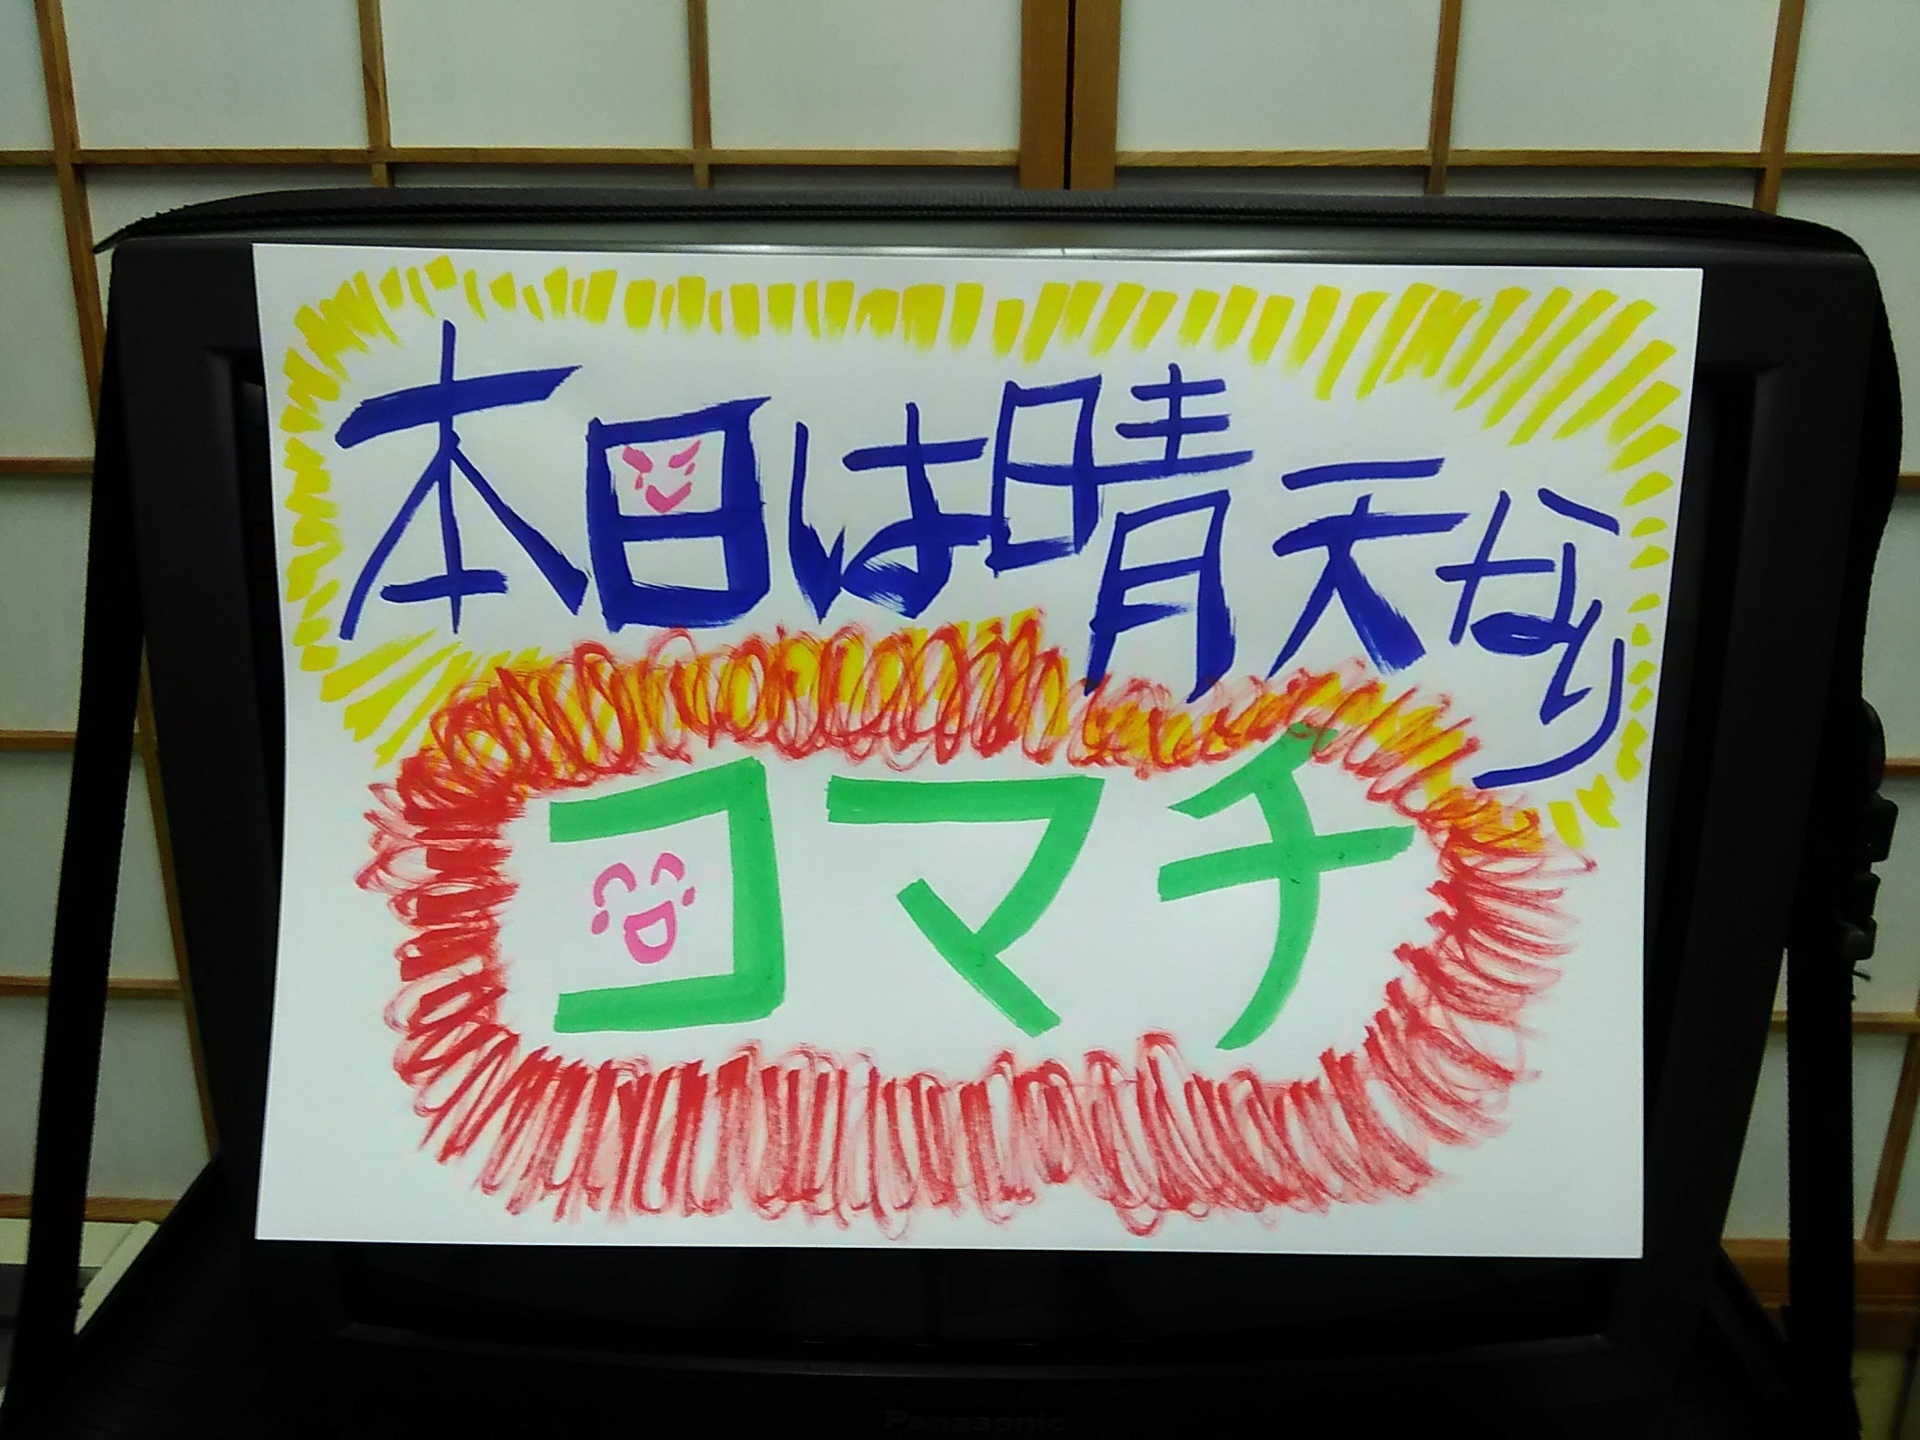 本日は晴天なり
コマチ
Panasonic